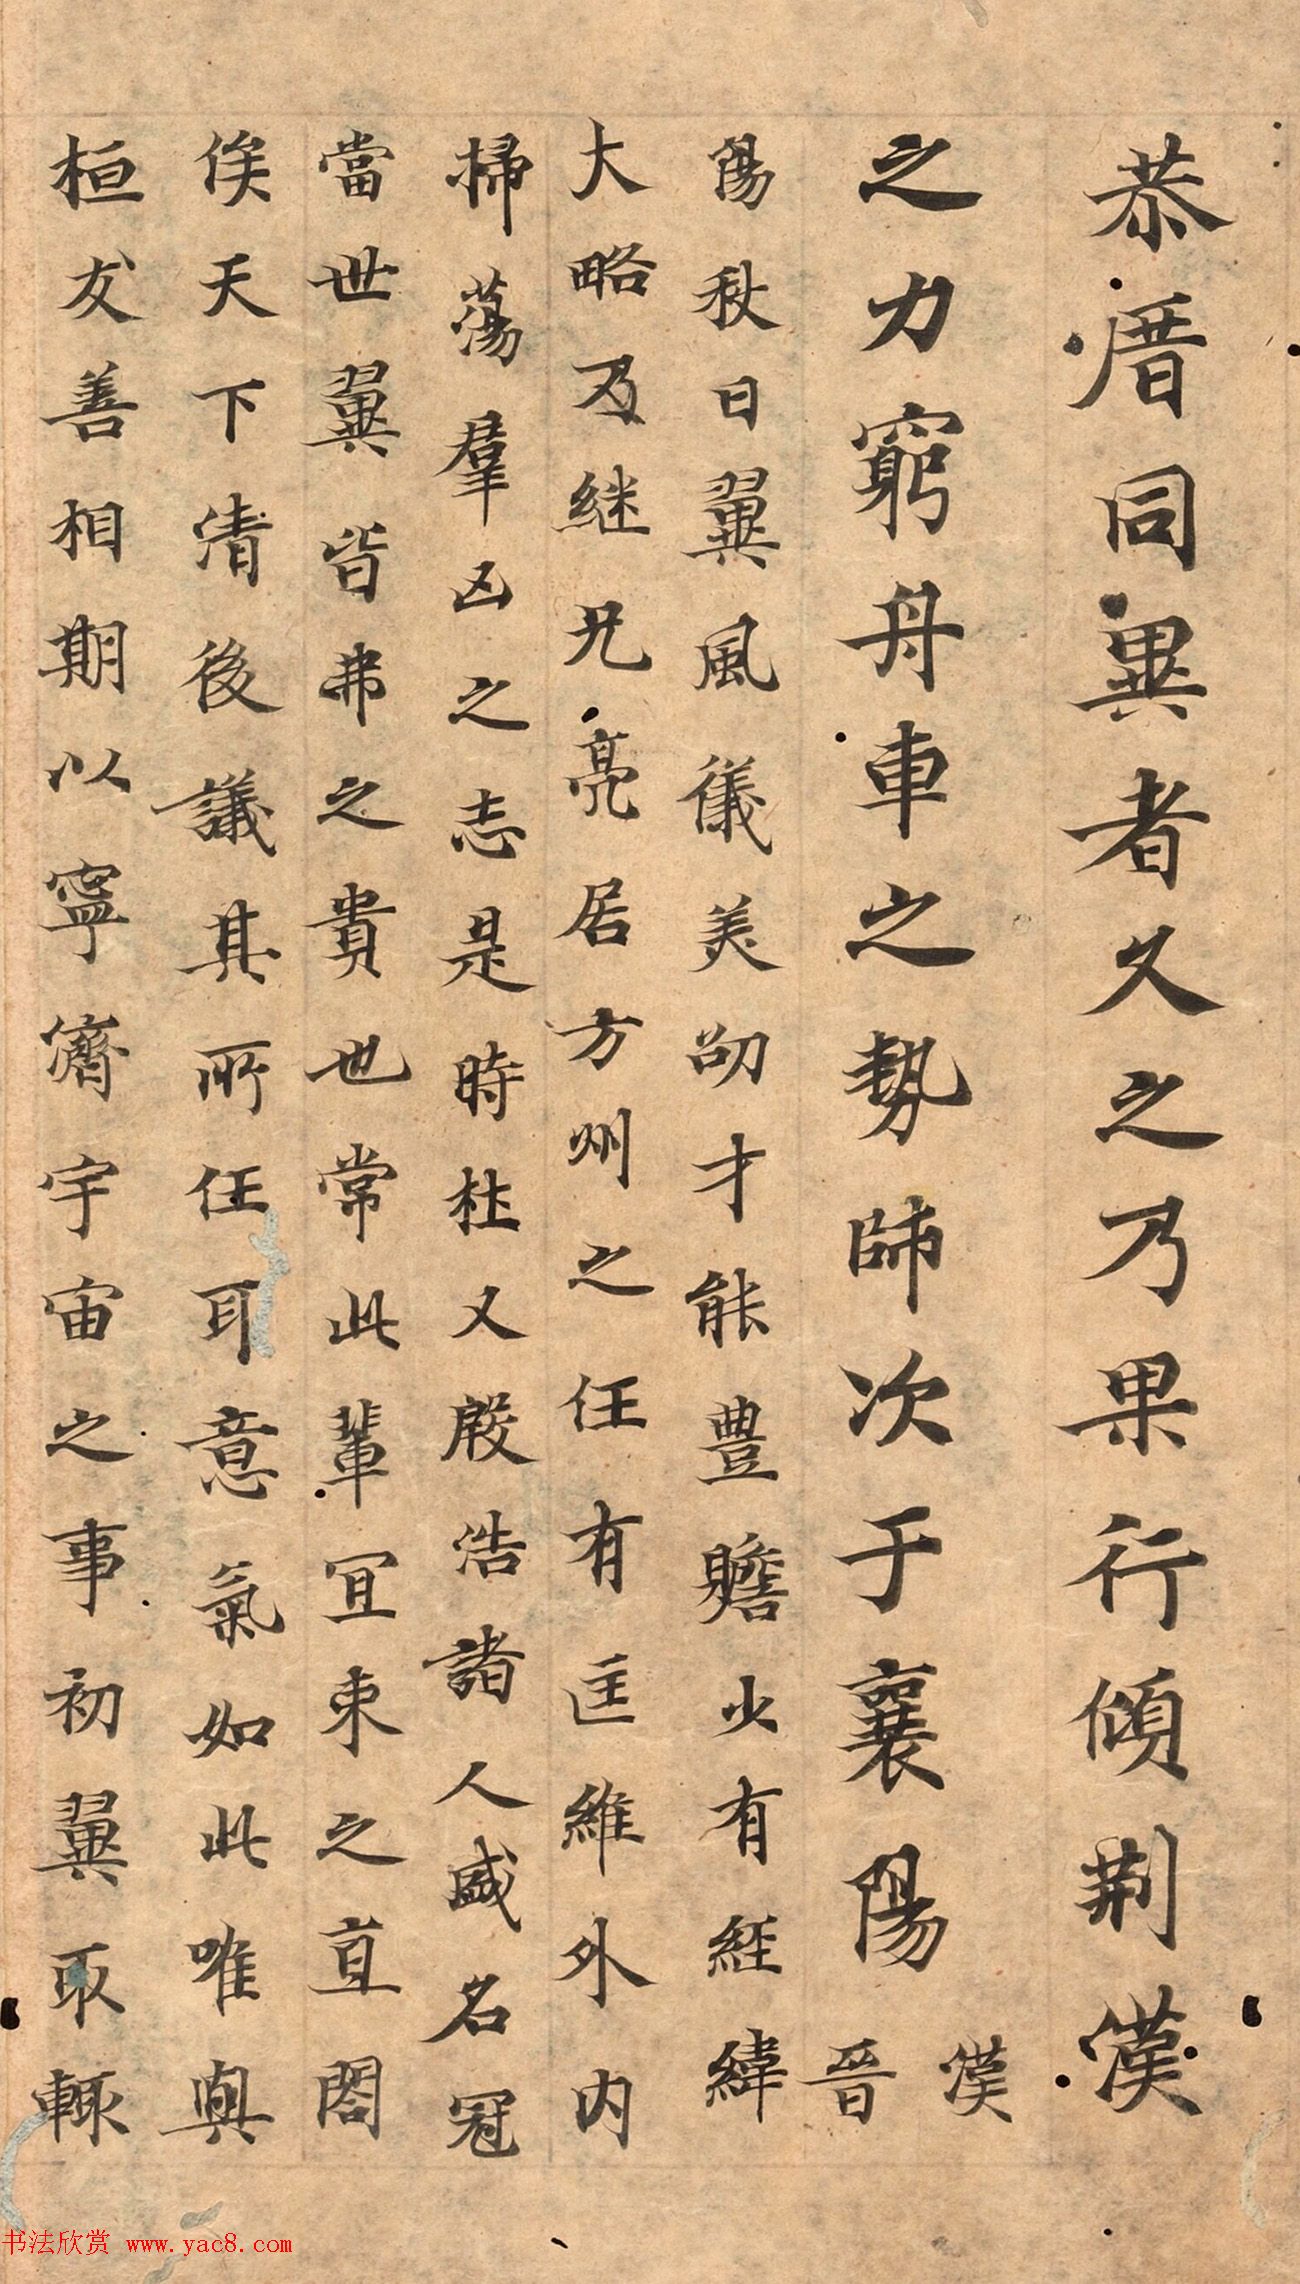 恭厝同異者久之乃果行傾荊漢
之力窮舟車之勢師次于襄陽漢晉
陽秋曰翼風儀美劭才能豊贍少有經緯
大略乃继兄亮居方州之任有匡維外內
掃蕩羣凶之志是時杜乂殷浩諸人盛名冠
當世翼皆弗之貴也常此輩宜束之直閣
俟天下清後議其所任耳意氣如此唯與
桓友善相期以寧濟宇宙之事初翼取輙
书法欣赏 www.yac8.com